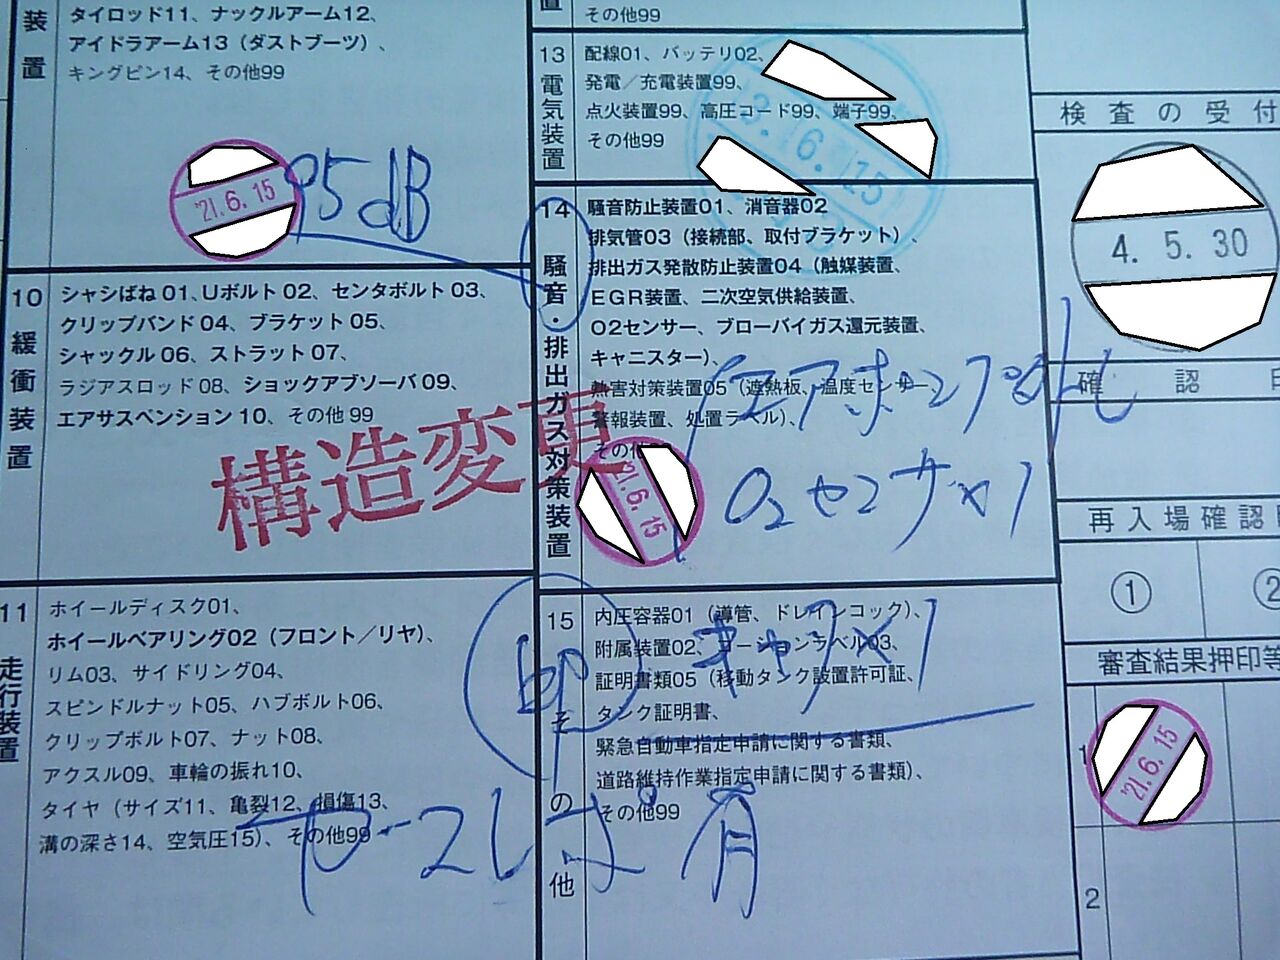 装置
タイロッド11、ナックルアーム12、
アイドラアーム13（ダストブーツ）、
キングピン14、その他99
'21.6.15
95dB
10 緩衝装置
シャシばね01、Uボルト02、センタボルト03、
クリップバンド04、ブラケット05、
シャックル06、ストラット07、
ラジアスロッド08、ショックアブソーバ09、
エアサスペンション10、その他99
構造変更
11 走行装置
ホイールディスク01、
ホイールベアリング02（フロント／リヤ）、
リム03、サイドリング04、
スピンドルナット05、ハブボルト06、
クリップボルト07、ナット08、
アクスル09、車輪の振れ10、
タイヤ（サイズ11、亀裂12、損傷13、
溝の深さ14、空気圧15）、その他99
置
その他99
13 電気装置
配線01、バッテリ02、
発電／充電装置99、
点火装置99、高圧コード99、端子99、
その他99
3.6.15
14 騒音・排出ガス対策装置
騒音防止装置01、消音器02
排気管03（接続部、取付ブラケット）、
排出ガス発散防止装置04（触媒装置、
EGR装置、二次空気供給装置、
O2センサー、ブローバイガス還元装置、
キャニスター）、
熱害対策装置05（遮熱板、温度センサー、
警報装置、処置ラベル）、
その他
エアポンプ
O2センサ
'21.6.15
15 その他
内圧容器01（導管、ドレインコック）、
附属装置02、コーションラベル03、
証明書類05（移動タンク設置許可証、
タンク証明書、
緊急自動車指定申請に関する書類、
道路維持作業指定申請に関する書類）、
その他99
有
検査の受付
4.5.30
確認印
再入場確認
① ②
審査結果押印等
1
'21.6.15
2